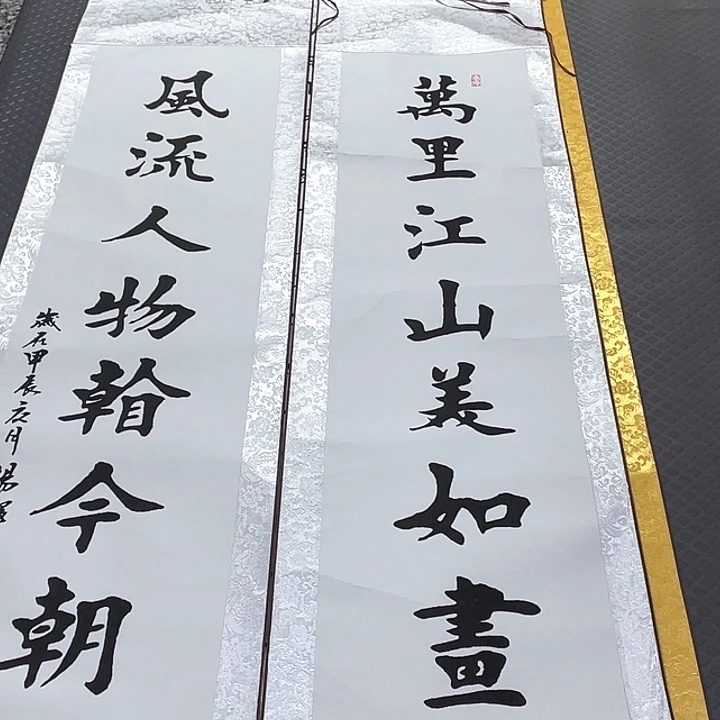 萬里江山美如畫
風流人物看今朝
歲在甲辰 月 楊